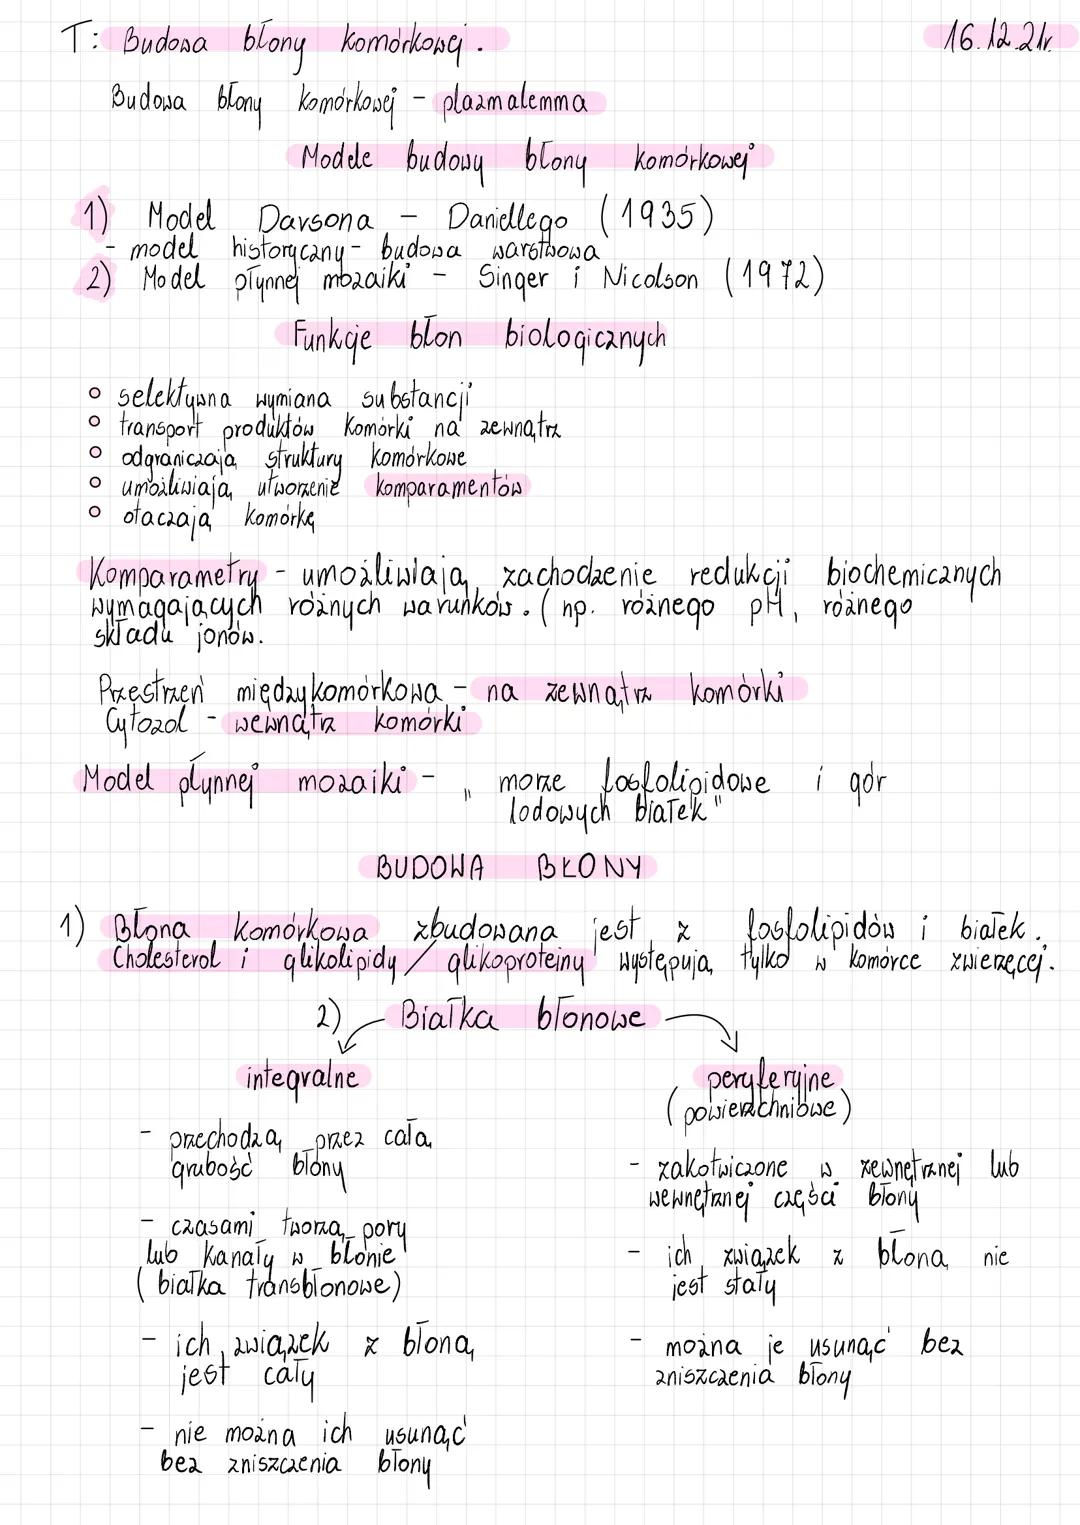 T: Budowa błony komórkowej. 16.12.21r.
Budowa błony komórkowej - plazmalemma
Modele budowy błony komórkowej
1) Model Davsona - Daniellego (1935)
- model historyczny - budowa warstwowa
2) Model płynnej mozaiki - Singer i Nicolson (1972)
Funkcje błon biologicznych
○ selektywna wymiana substancji
○ transport produktów komórki na zewnątrz
○ odgraniczają struktury komórkowe
○ umożliwiają utworzenie komparamentów
○ otaczają komórkę
Komparametry - umożliwiają zachodzenie redukcji biochemicznych
wymagających różnych warunków. (np. różnego pH, różnego
składu jonów.
Przestrzeń międzykomórkowa - na zewnątrz komórki
Cytozol - wewnątrz komórki
Model płynnej mozaiki - „morze fosfolipidowe i gór
lodowych białek"
BUDOWA BŁONY
1) Błona komórkowa zbudowana jest z fosfolipidów i białek.
Cholesterol i glikolipidy / glikoproteiny występują tylko w komórce zwierzęcej.
2) Białka błonowe
integralne
- przechodzą przez całą
grubość błony
- czasami tworzą pory
lub kanały w błonie
(białka transbłonowe)
- ich związek z błoną
jest cały
- nie można ich usunąć
bez zniszczenia błony
peryferyjne
(powierzchniowe)
- zakotwiczone w zewnętrznej lub
wewnętrznej części błony
- ich związek z błoną nie
jest stały
- można je usunąć bez
zniszczenia błony